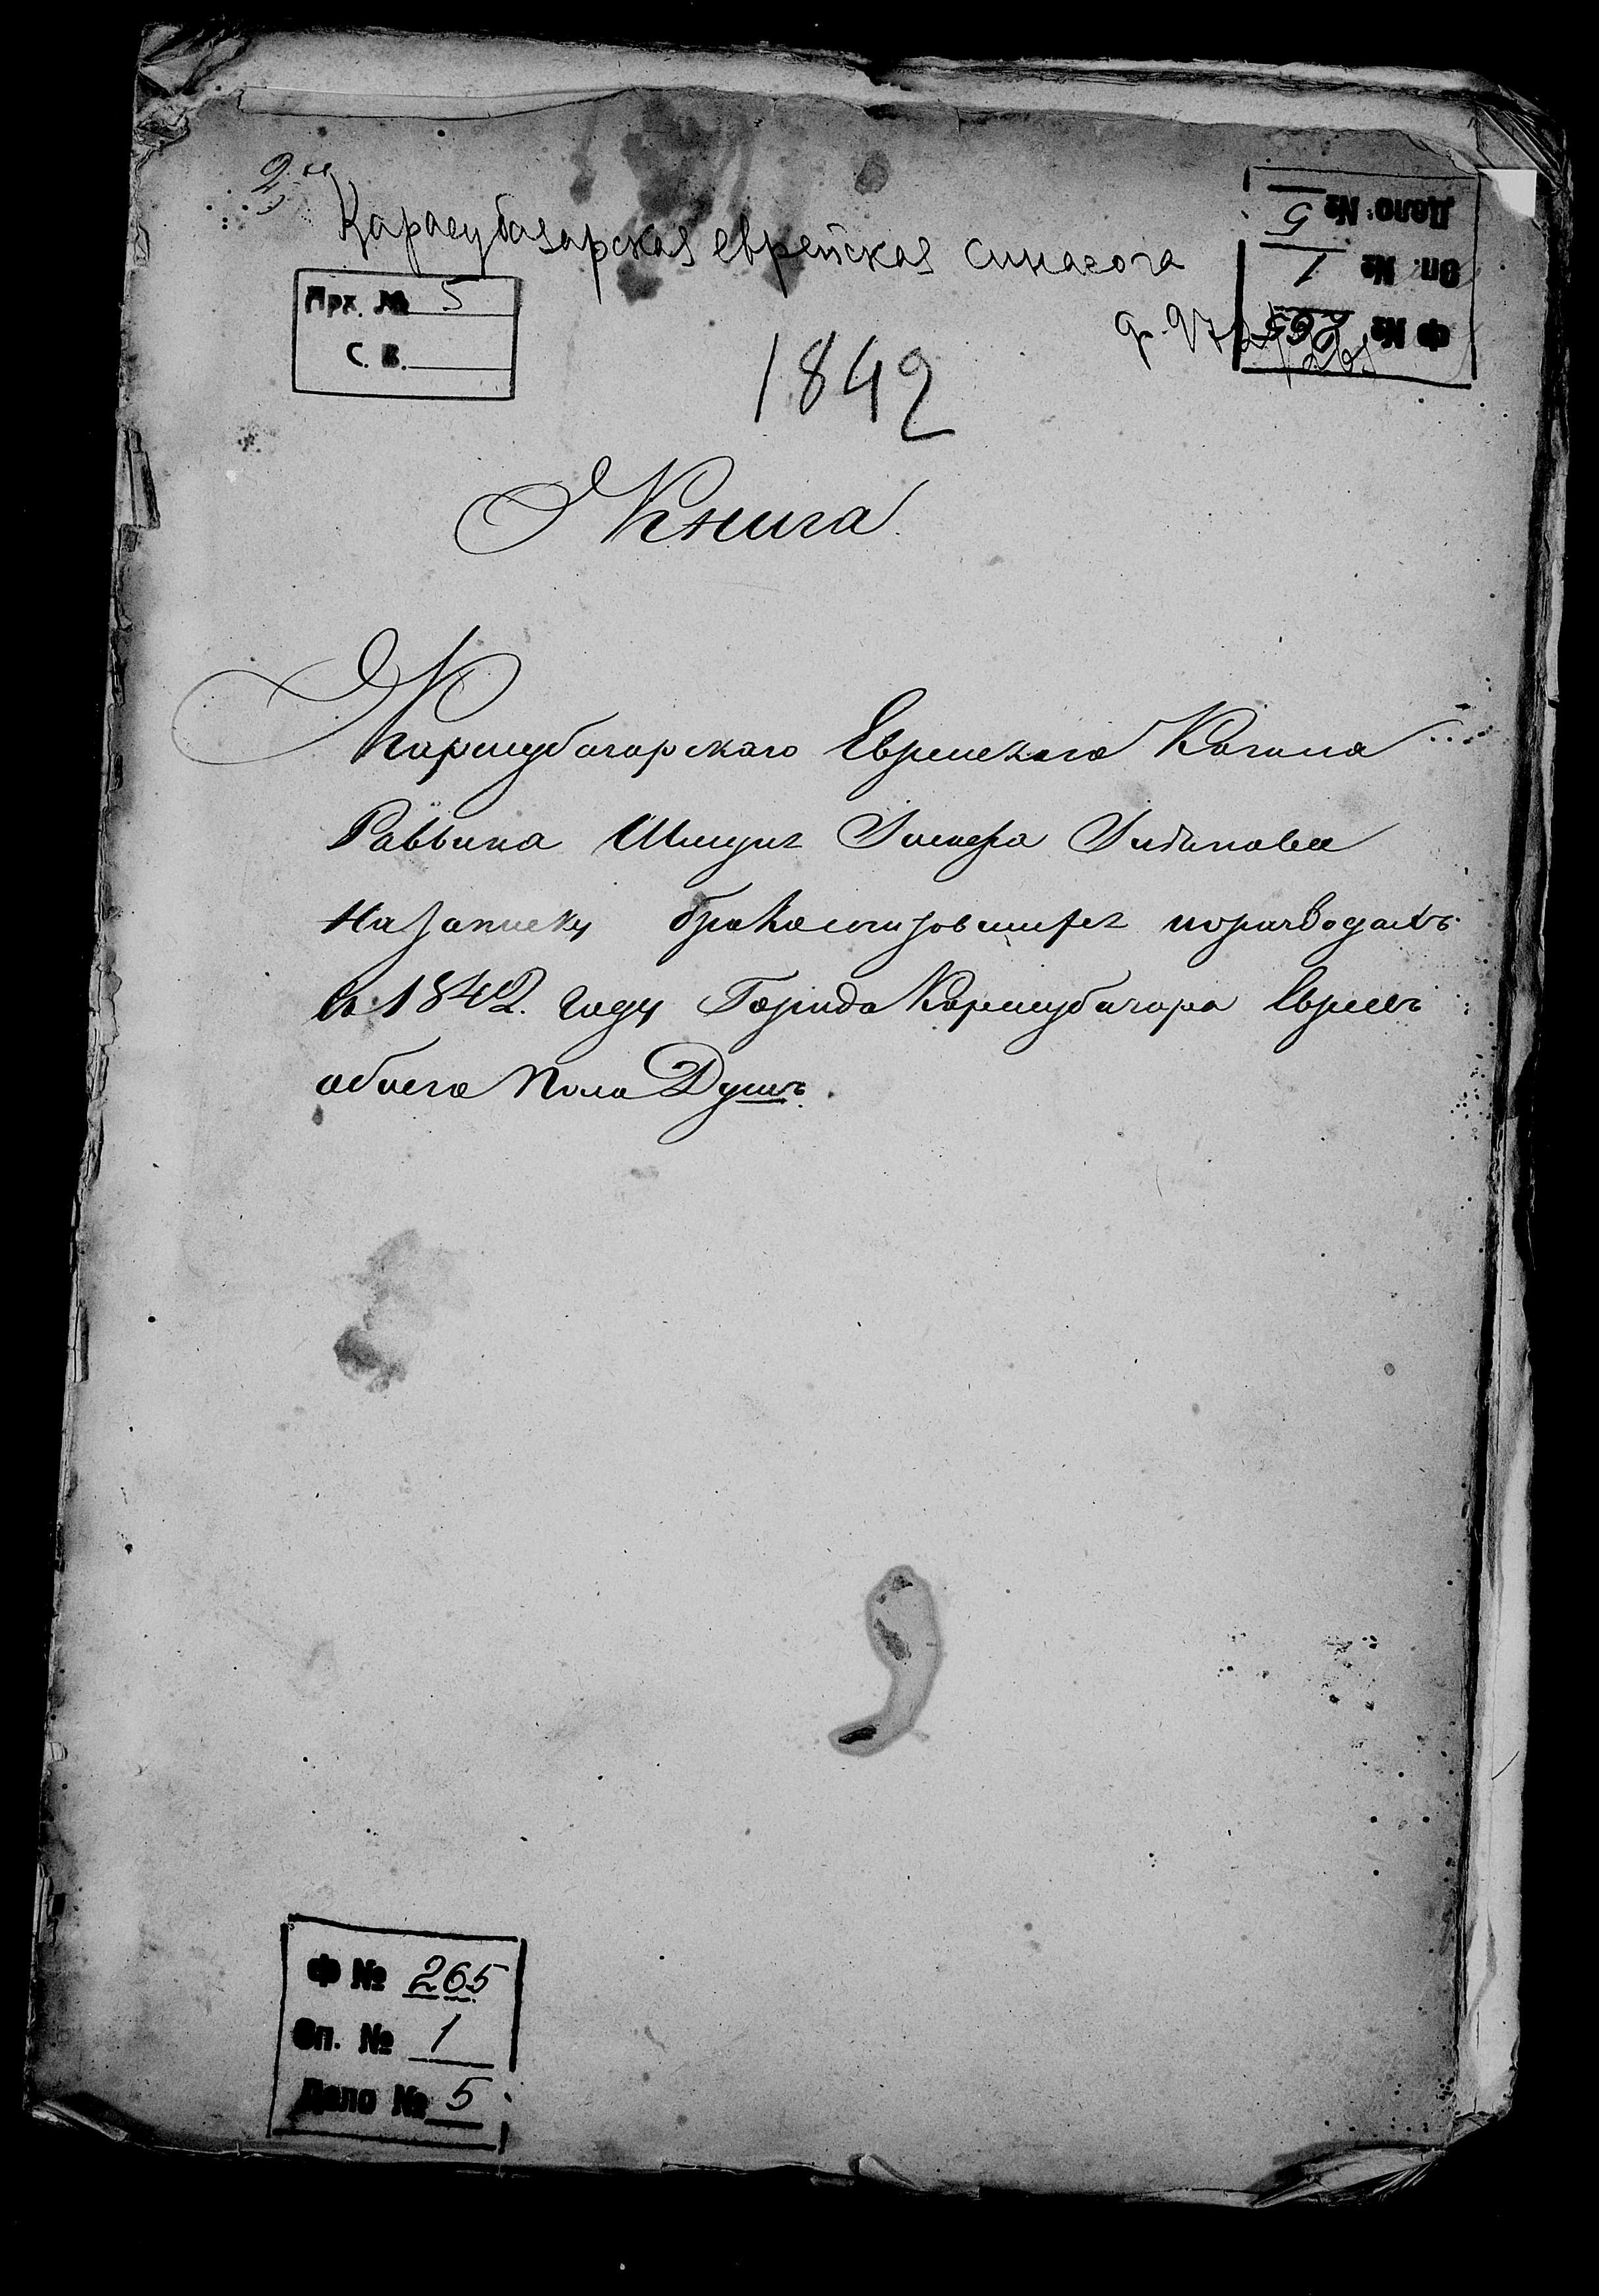 2-я
Карасубазарская еврейская синагога
Арх. № 5
С. В.
Дело № 5
Оп. № 1
Ф № 265
1842
Книга
Карасубазарского Еврейского Кагала
Раввина
На записку бракосочетавшихся
в 1842. году Города Карасубазара Евреевъ
обоего пола Душъ.
Ф № 265
Оп. № 1
Дело № 5